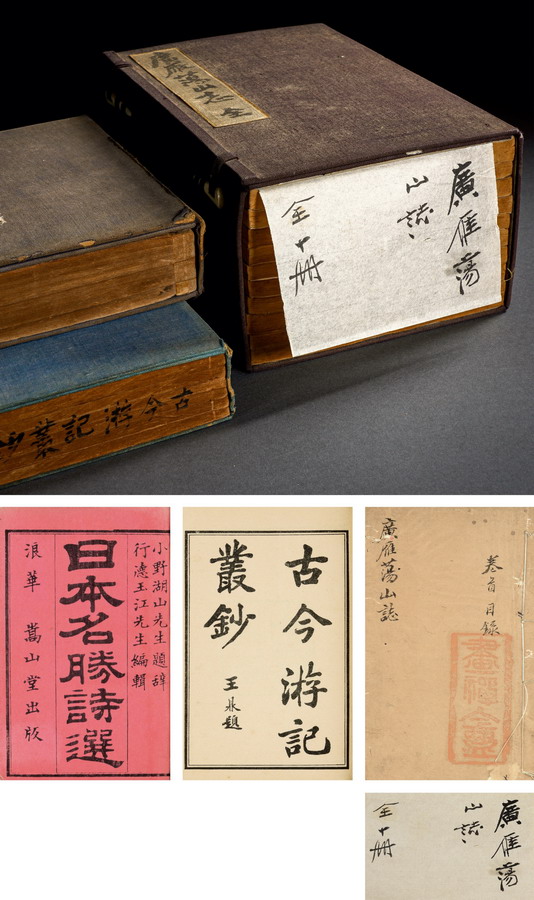 廣雁蕩山志 全
廣雁蕩
山誌
全十冊
古今游記叢鈔
小野湖山先生題辞
行德玉江先生編輯
日本名勝詩選
浪華 嵩山堂出版
古今游記
叢鈔
王水題
卷首目錄
廣雁蕩山誌
廣雁蕩
山誌
全十冊